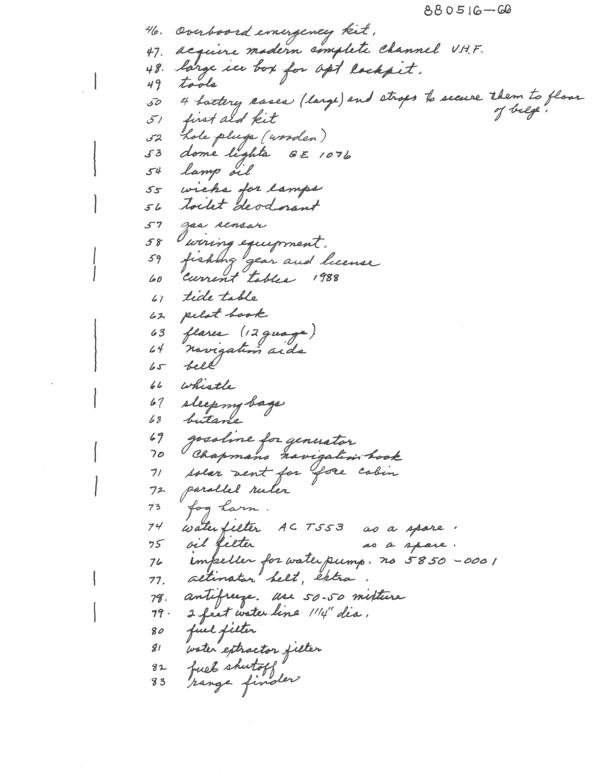 880516-GD
46. Overboard emergency kit.
47. acquire modern complete channel V.H.F.
48. large ice box for apt cockpit.
49 tools
50 4 battery cases (large) and straps to secure them to floor
of belge.
51 first aid kit
52 hole plugs (wooden)
53 dome lights GE 1076
54 lamp oil
55 wicks for lamps
56 toilet deodorant
57 gas sensor
58 wiring equipment.
59 fishing gear and license
60 Current tables 1988
61 tide table
62 pilot book
63 flares (12 guage)
64 navigation aids
65 bell
66 whistle
67 sleeping bags
68 butane
69 gasoline for generator
70 Chapmans navigation book
71 solar vent for fore cabin
72 parallel ruler
73 fog horn.
74 water filter AC T553 as a spare.
75 oil filter as a spare.
76 impeller for water pump. no 5850-0001
77. altinator belt, extra.
78. antifreeze. use 50-50 mixture
79. 2 feet water line 1 1/4" dia.
80 fuel filter
81 water extractor filter
82 fuel shutoff
83 range finder